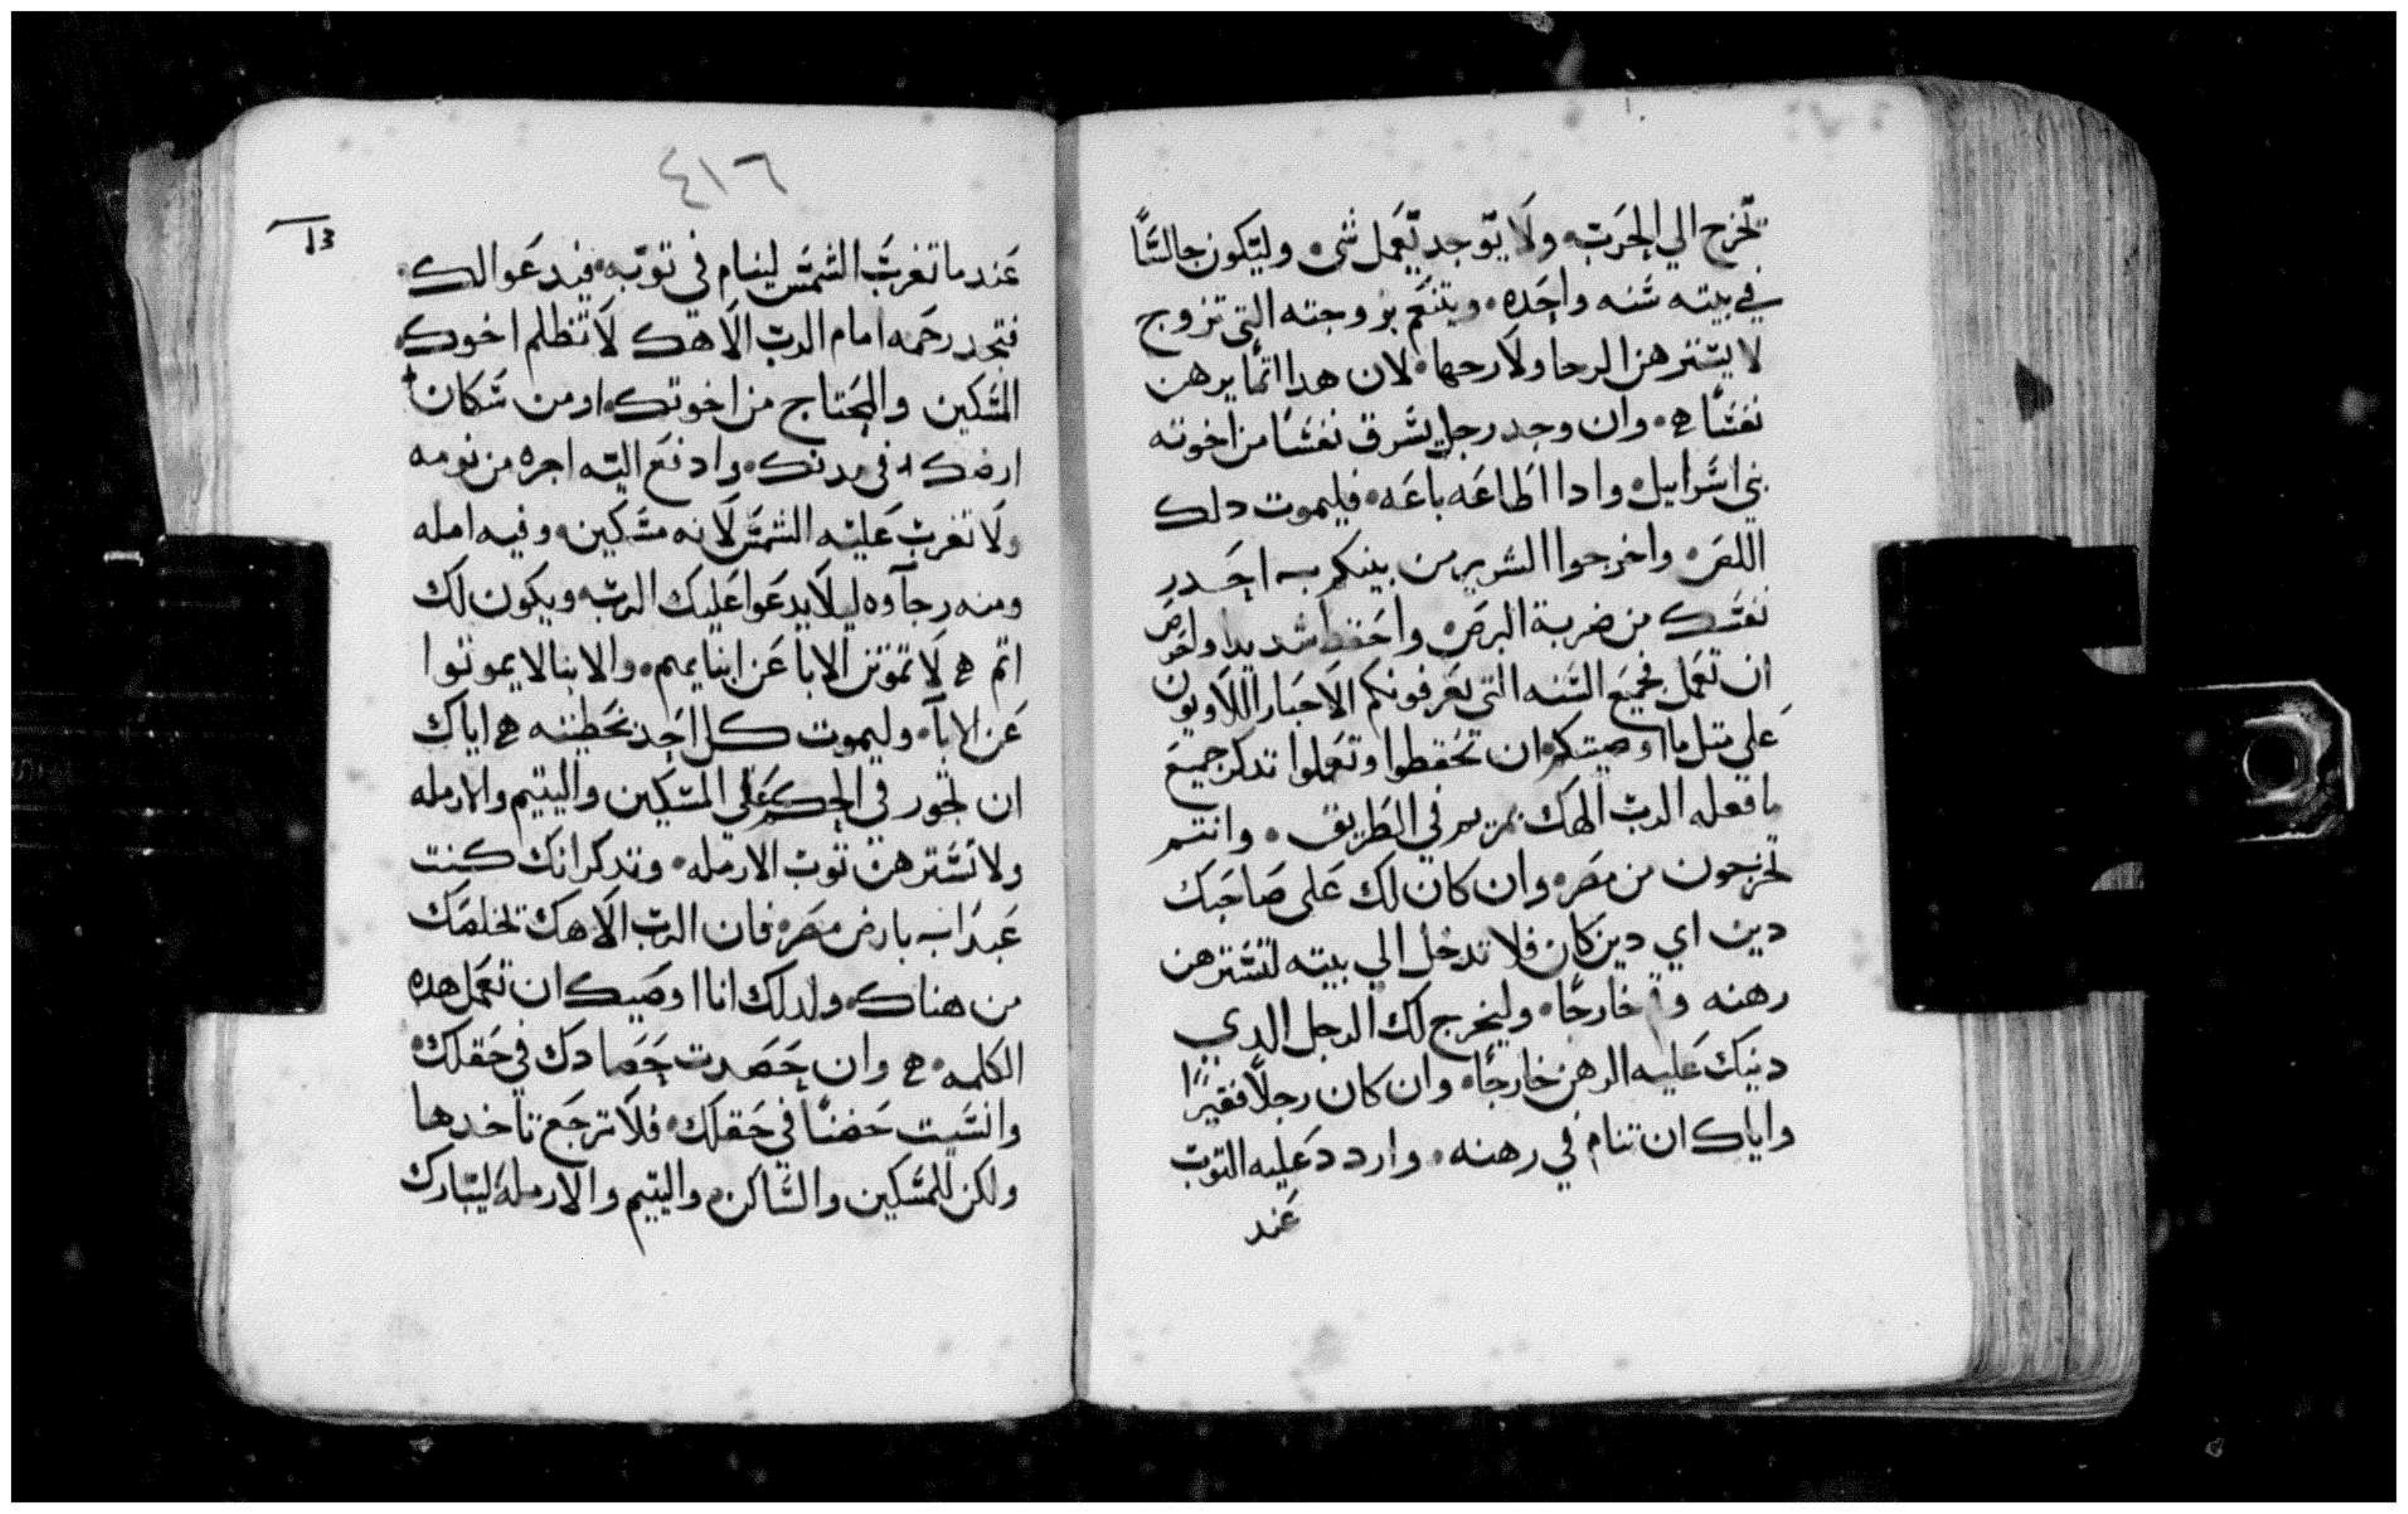 تخرج الي الحرب ولا يوجد يعمل شى وليكون جالسًا
في بيته سنه واحده ويتنعم بزوجته التي تزوج
لا يسترهن الرحا ولا رحها لان هدا انما يرهن
نفسًا وان وجد رجل يسرق نفسًا من اخوته
بني اسراييل وادا اطاعه باعه فليموت دلك
اللص واخرجوا الشرير من بينكم احدر
نفسك من ضربة البرص واحفظ شديدا واحرص
ان تعمل بجميع السنه التي يعرفونكم الاحبار اللاويون
علي متل ما اوصيتكم ان تحفظوا وتعملوا تدكر جميع
ما فعله الرب الهك بمريم في الطريق وانتم
تخرجون من مصر وان كان لك علي صاحبك
دين اي دين كان فلا تدخل الي بيته لتسترهن
رهنه وقف خارجًا وليخرج لك الرجل الدي
دينك عليه الرهن خارجًا وان كان رجلًا فقيرًا
واياك ان تنام في رهنه واردد عليه التوب
عند
٤١٦
عندما تغرب الشمس لينام في توبه فيدعوا لك
فتجد رحمه امام الرب الاهك لا تظلم اخوك
المسكين والمحتاج من اخوتك او من سكان
ارضك في مدنك وادفع اليه اجره من يومه
ولا تغرب عليه الشمس لانه مسكين وفيه امله
ومنه رجآوه ليلا يدعوا عليك الرب ويكون لك
اتم لا تموتن الابا عن ابنايهم والابنا لا يموتوا
عن الابآ وليموت كل احد بخطيته اياك
ان تجور في الحكم علي المسكين واليتيم والارمله
ولا تسترهن توب الارمله وتدكر انك كنت
عبدًا بارض مصر فان الرب الاهك تخلصك
من هناك ولدلك انا اوصيك ان تعمل هده
الكلمه وان حصدت حصادك في حقلك
وانسيت حضنًا في حقلك فلا ترجع تاخدها
ولكن للمسكين والساكن واليتيم والارمله ليبارك